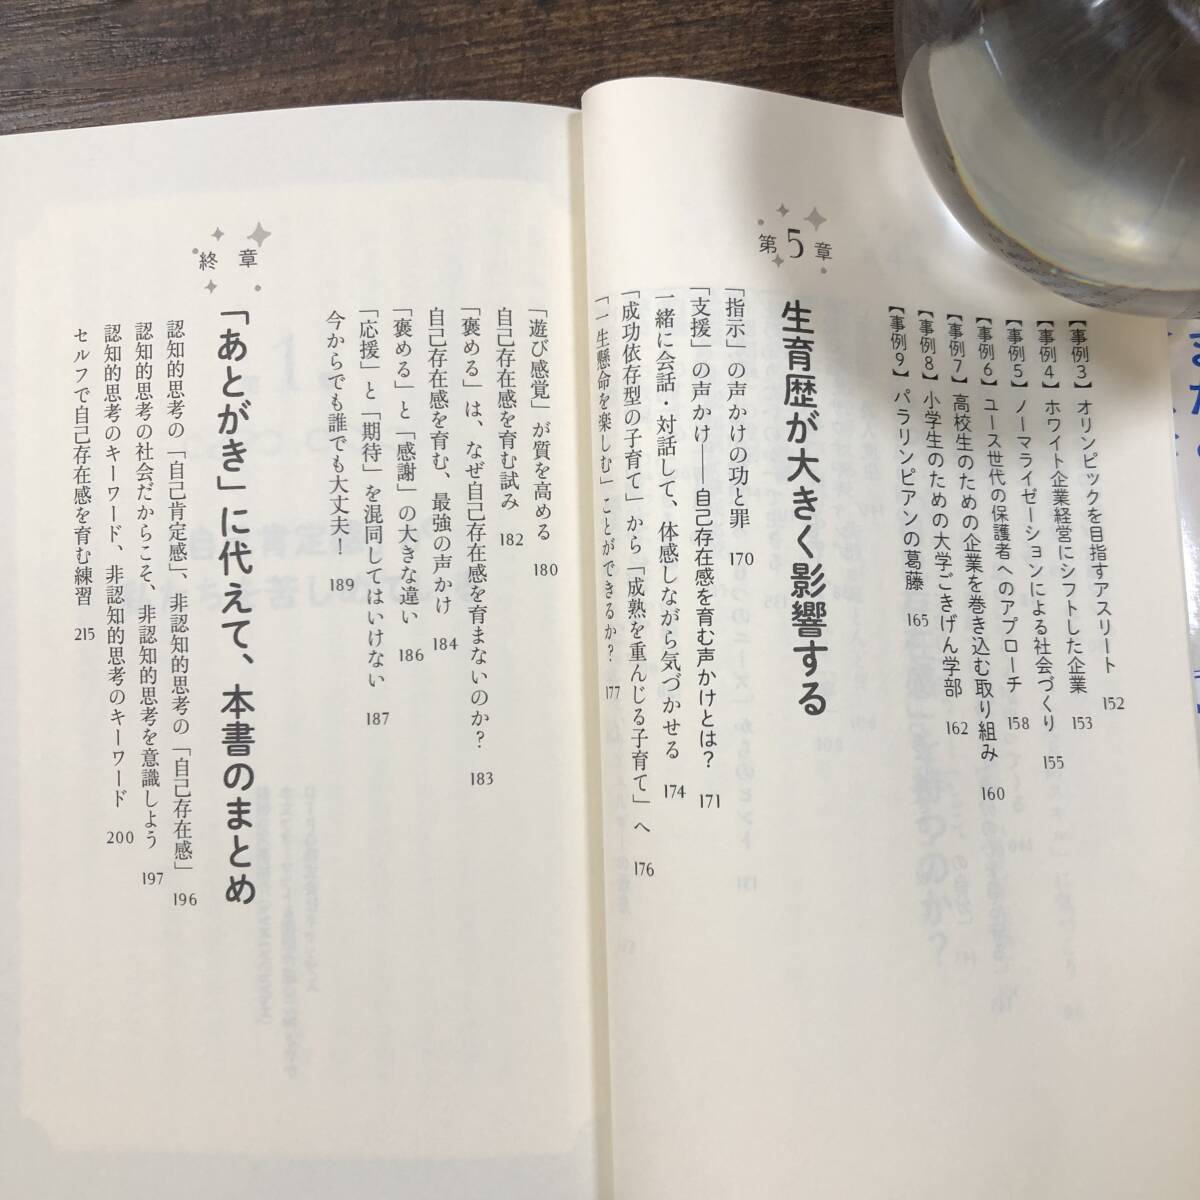 【事例3】オリンピックを目指すアスリート 152
【事例4】ホワイト企業経営にシフトした企業 153
【事例5】ノーマライゼーションによる社会づくり 155
【事例6】ユース世代の保護者へのアプローチ 158
【事例7】高校生のための企業を巻き込む取り組み 160
【事例8】小学生のための大学ごきげん学部 162
【事例9】パラリンピアンの葛藤 165
第5章
生育歴が大きく影響する
「指示」の声かけの功と罪 170
「支援」の声かけ──自己存在感を育む声かけとは? 171
一緒に会話・対話して、体感しながら気づかせる 174
「成功依存型の子育て」から「成熟を重んじる子育て」へ 176
「一生懸命を楽しむ」ことができるか? 177
「遊び感覚」が質を高める 180
自己存在感を育む試み 182
「褒める」は、なぜ自己存在感を育まないのか? 183
自己存在感を育む、最強の声かけ 184
「褒める」と「感謝」の大きな違い 186
「応援」と「期待」を混同してはいけない 187
今からでも誰でも大丈夫! 189
終章
「あとがき」に代えて、本書のまとめ
認知的思考の「自己肯定感」、非認知的思考の「自己存在感」 196
認知的思考の社会だからこそ、非認知的思考を意識しよう 197
認知的思考のキーワード、非認知的思考のキーワード 200
セルフで自己存在感を育む練習 215